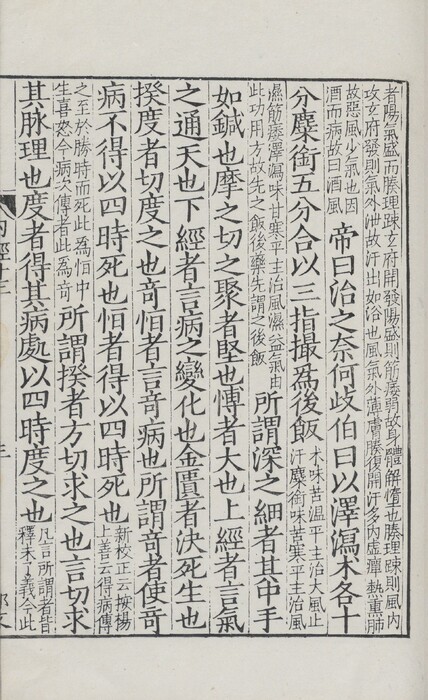 者陽氣盛而腠理踈玄府開發陽盛則筋痿弱故身體解惰也腠理踈則風內
攻玄府發則氣外泄故汗出如浴也風氣外薄膚腠復開汗多內虛癉熱熏肺
故惡風少氣也因
酒而病故曰酒風
帝曰治之奈何歧伯曰以澤瀉朮各十
分麋銜五分合以三指撮爲後飯
朮味苦溫平主治大風止
汗麋銜味苦寒平主治風
濕筋痿澤瀉味甘寒平主治風濕益氣由
此功用方故先之飯後藥先謂之後飯
所謂深之細者其中手
如鍼也摩之切之聚者堅也慱者大也上經者言氣
之通天也下經者言病之變化也金匱者決死生也
揆度者切度之也奇恒者言奇病也所謂奇者使奇
病不得以四時死也恒者得以四時死也
新校正云按楊
上善云得病傳
之至於勝時而死此爲恒中
生喜怒今病次傳者此爲奇
所謂揆者方切求之也言切求
其脉理也度者得其病處以四時度之也
凡言所謂者皆
釋未了義今此
內經十三